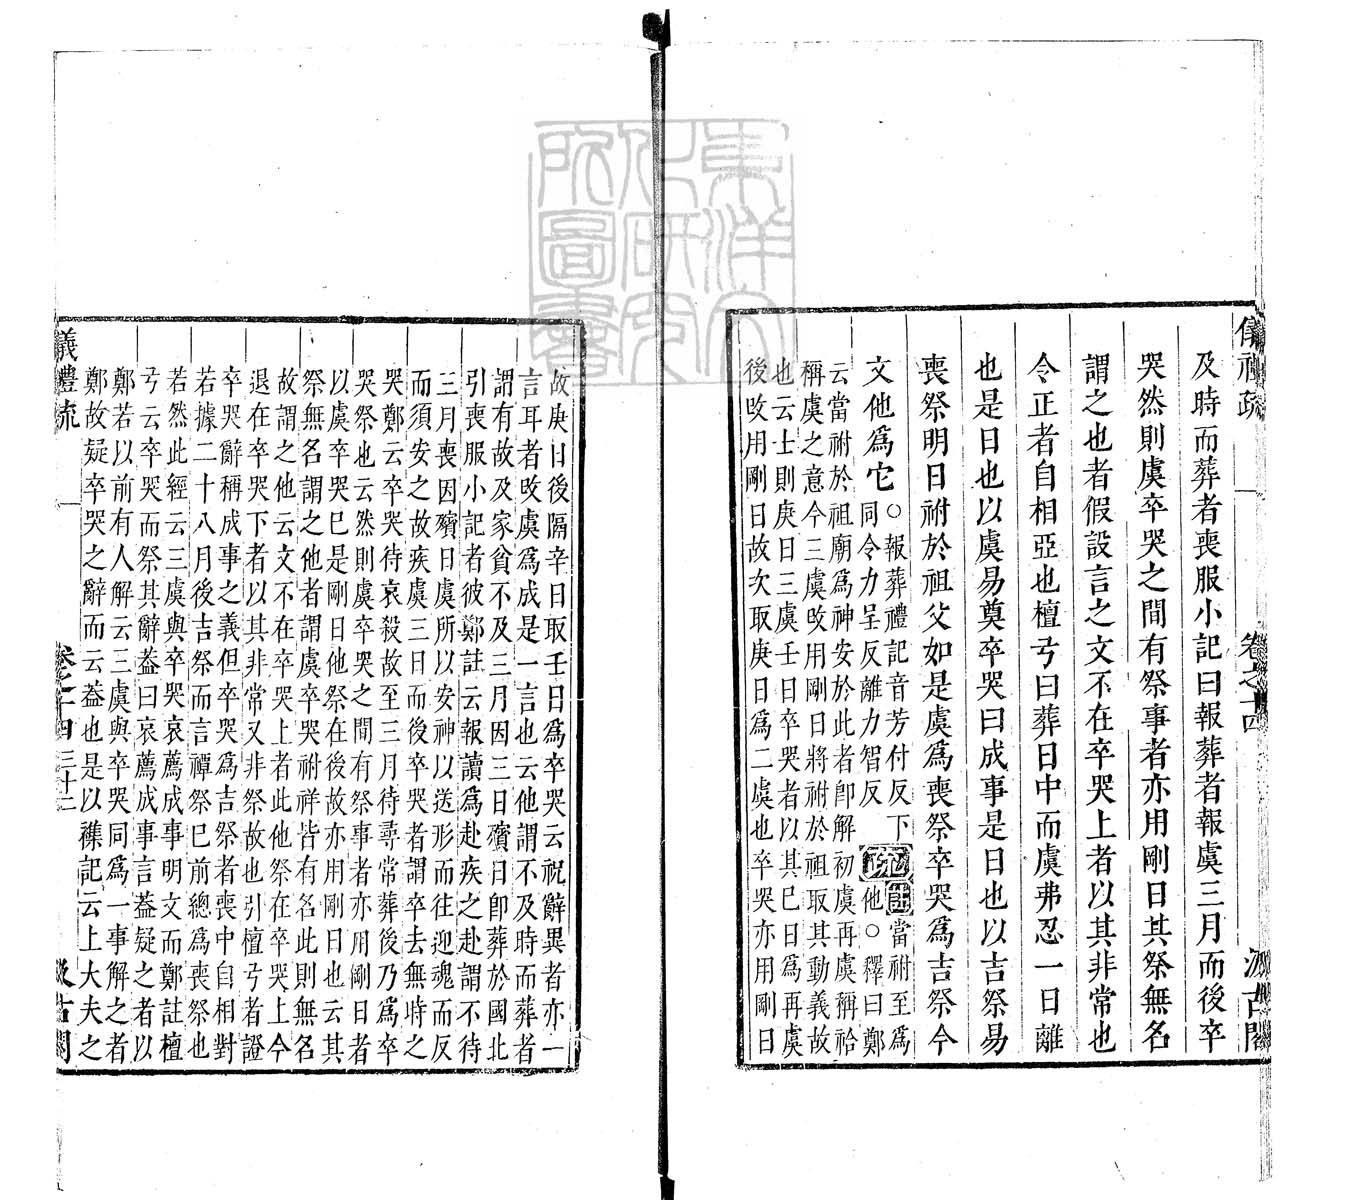 儀禮疏 卷之十四 汲古閣
及時而葬者喪服小記曰報葬者報虞三月而後卒
哭然則虞卒哭之間有祭事者亦用剛日其祭無名
謂之他者假設言之文不在卒哭上者以其非常也
令正者自相亞也檀弓曰葬日中而虞弗忍一日離
也是日也以虞易奠卒哭曰成事是日也以吉祭易
喪祭明日祔於祖父如是虞爲喪祭卒哭爲吉祭今
文他爲它
○報葬禮記音芳付反下
同令力呈反離力智反
疏
註當祔至爲
他○釋曰鄭
云當祔於祖廟爲神安於此者卽解初虞再虞稱祫
稱虞之意今三虞攺用剛日將祔於祖取其動義故
也云士則庚日三虞壬日卒哭者以其巳日爲再虞
後攺用剛日故次取庚日爲二虞也卒哭亦用剛日
故庚日後隔辛日取壬日爲卒哭云祝辭異者亦一
言耳者攺虞爲成是一言也云他謂不及時而葬者
謂有故及家貧不及三月因三日殯日卽葬於國北
引喪服小記者彼鄭註云報讀爲赴疾之赴謂不待
三月喪因殯日虞所以安神以送形而往迎魂而反
而須安之故疾虞三日而後卒哭者謂卒去無時之
哭鄭云卒哭待哀殺故至三月待尋常葬後乃爲卒
哭祭也云然則虞卒哭之間有祭事者亦用剛日者
以虞卒哭巳是剛日他祭在後故亦用剛日也云其
祭無名謂之他者謂虞卒哭祔祥皆有名此則無名
故謂之他云文不在卒哭上者此他祭在卒哭上今
退在卒哭下者以其非常又非祭故也引檀弓者證
卒哭辭稱成事之義但卒哭爲吉祭者喪中自相對
若據二十八月後吉祭而言禫祭巳前總爲喪祭也
若然此經云三虞與卒哭哀薦成事明文而鄭註檀
弓云卒哭而祭其辭葢曰哀薦成事言葢疑之者以
鄭若以前有人解云三虞與卒哭同爲一事解之者
鄭故疑卒哭之辭而云葢也是以襍記云上大夫之
儀禮疏 卷之十四 三十二 汲古閣